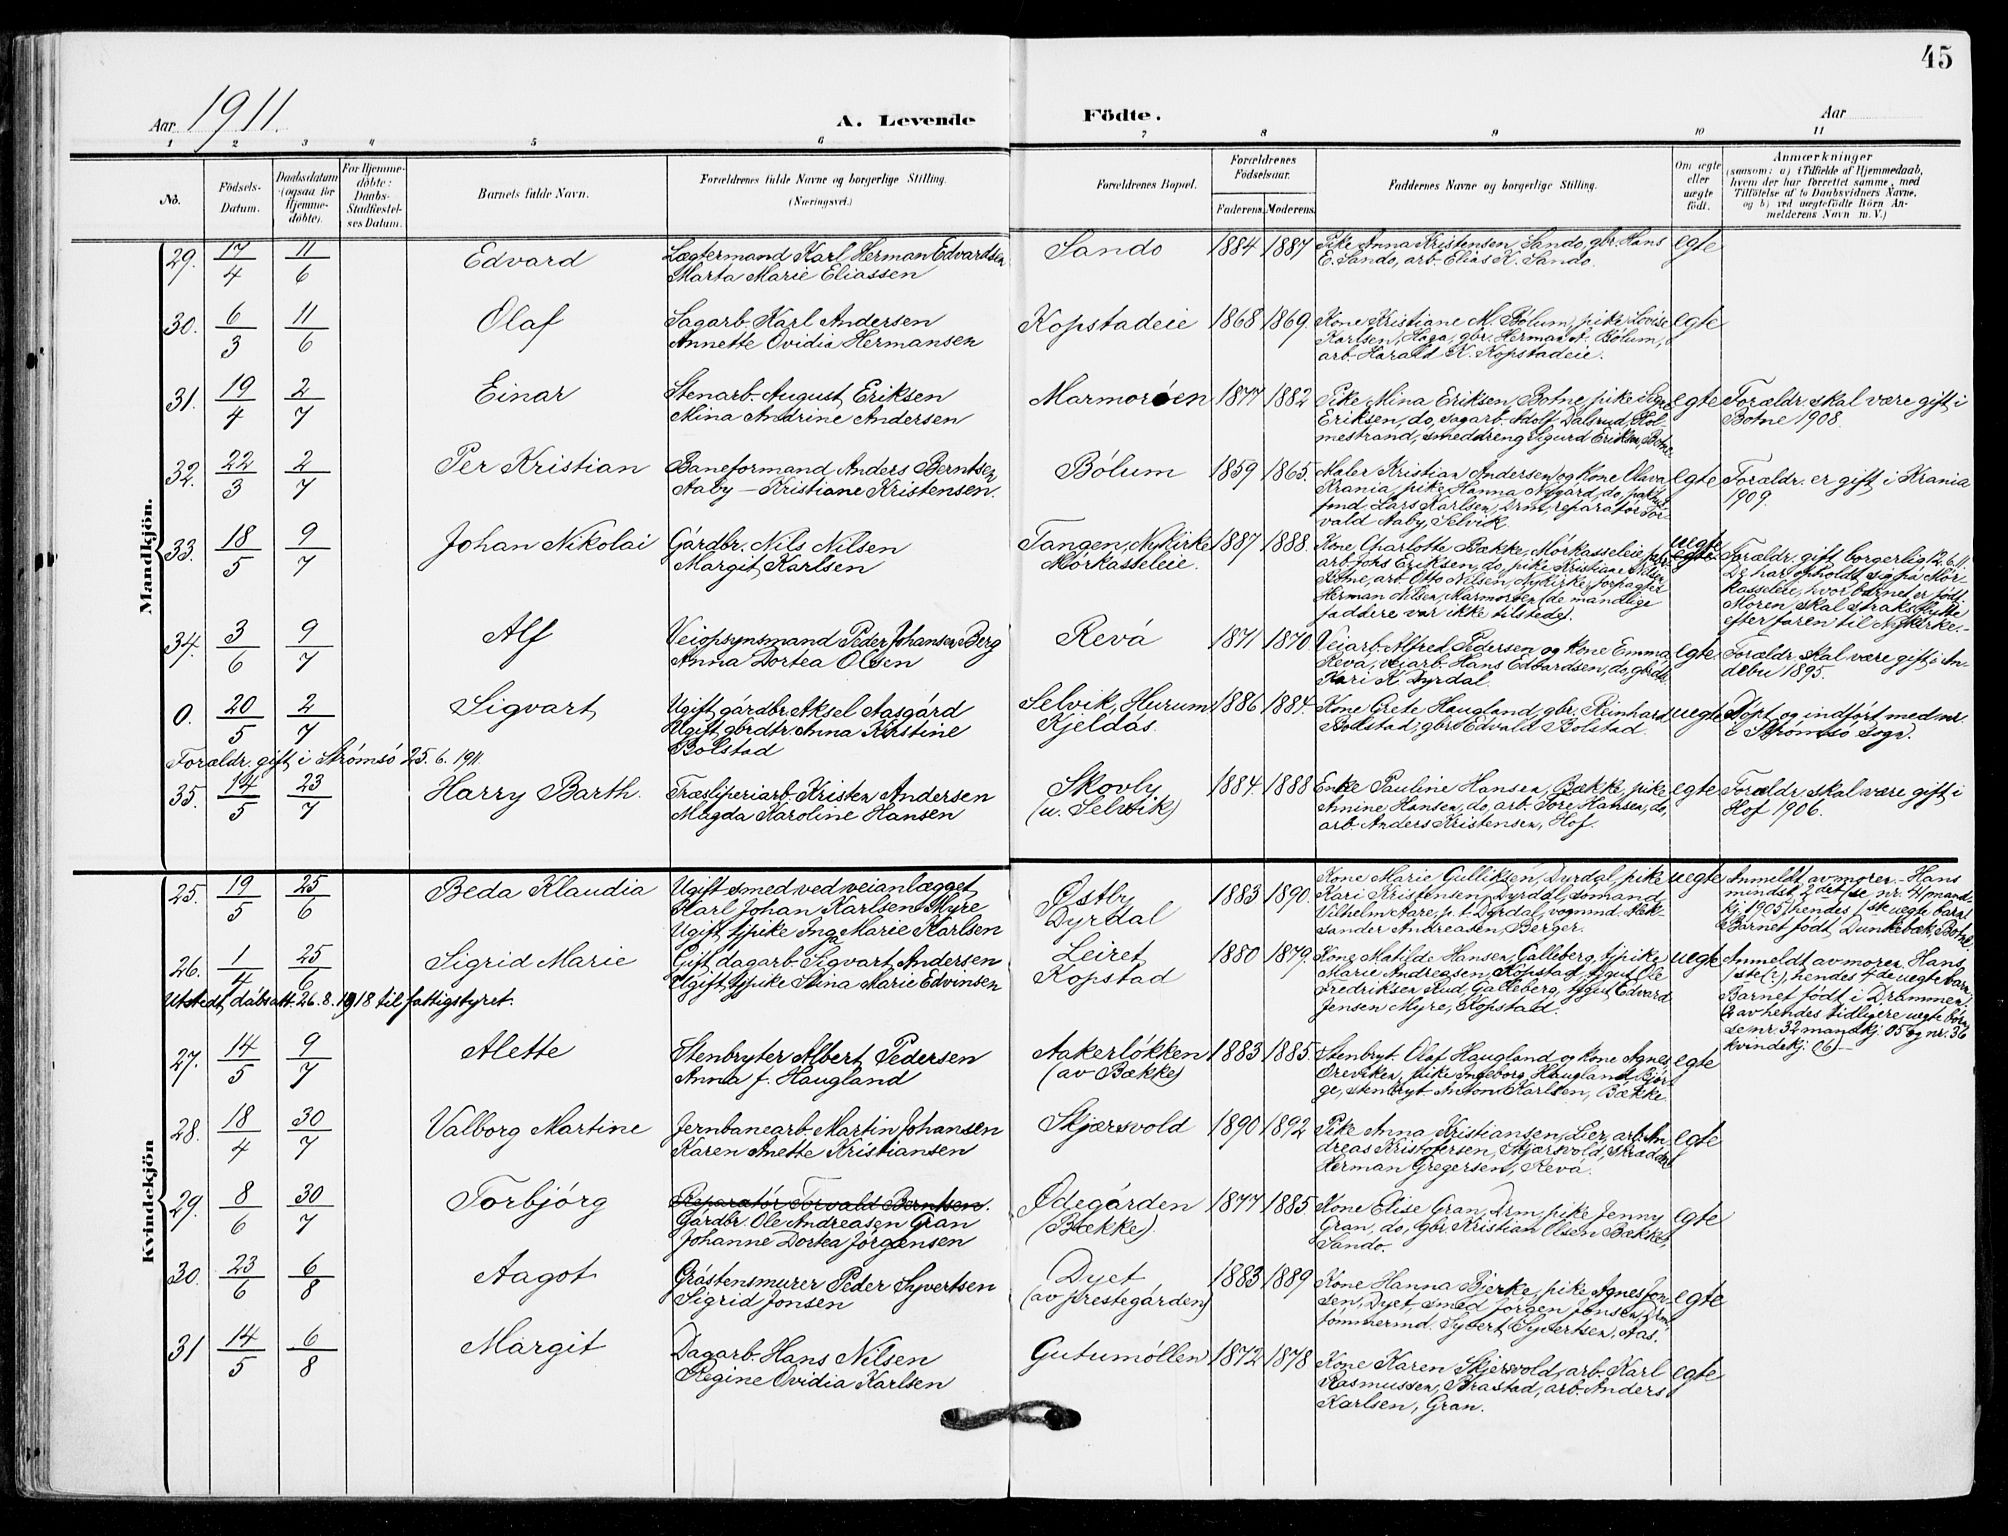 45
Aar 1911.
A. Levende Födte.
Aar
1 2 3 4 5 6 7 8 9 10 11
No.
Födsels-Datum.
Daabsdatum (ogsaa for Hjemme-döbte).
For Hjemme-döbte: Daabs-Stadfæstel-ses Datum.
Barnets fulde Navn.
Forældrenes fulde Navne og borgerlige Stilling.
(Næringsvei.)
Forældrenes Bopæl.
Forældrenes Födselsaar.
Faderens. Moderens.
Faddernes Navne og borgerlige Stilling.
Om ægte eller uægte födt.
Anmærkninger
(saasom: a) i Tilfælde af Hjemmedaab,
hvem der har forrettet samme, med
Tilföielse af to Daabsvidners Navne,
og b) ved uægtefödte Börn An-
melderens Navn m. V.)
Mandkjön.
29. 17/4 11/6 Edvard
Lægtermand Karl Herman Edvardsen
Marta Marie Eliassen
Sando 1884 1887
Pike Anna Kristensen, Sando, gbr. Hans
E. Sando, arb. Elias K. Sando.
egte
30. 6/3 11/6 Olaf
Sagarb. Karl Andersen
Annette Ovidia Hermansen
Kopstadeie 1868 1869.
Kone Kristiane M. Bólum, pike Lovise
Karlsen, Haga, gbr. Herman A. Bólum,
arb. Harald K. Kopstadeie.
egte
31. 19/4 2/7 Einar
Stenarb. August Eriksen
Mina Andrine Andersen
Marmoróen 1877 1882
Pike Mina Eriksen, Botne, pike Signe
Eriksen, do, sagarb. Adolf Dalsrud, Hol-
mestrand, smeddreng Sigurd Eriksen, Botne
egte
Forældr. skal være gift i
Botne 1908.
32. 22/3 2/7 Per Kristian
Baneformand Anders Berntsen
Aaby — Kristiane Kristensen.
Bólum 1859 1865.
Maler Kristian Andersen og kone Olava
Krania, pike Hanna Nygård, do, pakhus
fmd. Lars Karlsen, Drm, reparatór Tor-
vald Aaby, Selvik.
egte
Forældr. er gift i Krania
1909.
33. 18/5 9/7 Johan Nikolai
Gårdbr. Nils Nilsen
Margit Karlsen
Tangen, Nykirke
Mórkasseleie.
1887 1888.
Kone Charlotte Bække, Mórkasseleie,
arb. Johs Eriksen, do, pike Kristiane Nilsen
Botne, arb. Otto Nilsen, Nykirke, forpagter
Herman Nilsen, Marmoróen (de mandlige
faddere var ikke tilstede).
uegte
egte
Forældr. gift borgerlig 12.6.11.
De har opholdt sig på Mór-
kasseleie, hvor barnet er født.
Moren skal straks flytte
efter faren til Nykirke.
34. 3/6 9/7 Alf
Veiopsynsmand Peder Johansen Berg
Anna Dortea Olsen
Revá 1871 1870
Veiarb. Alfred Pedersen og kone Emma
Revá, veiarb. Hans Edvardsen, do, gbrdtr.
Kari K. Dyrdal.
egte
Forældr. skal være gift i An-
debu 1895.
0. 20/5 2/7 Sigvart
Ugift gårdbr. Aksel Aasgård
Ugift gbrdtr. Anna Kirstine
Bolstad
Selvik, Hurum
Kjeldås.
1886 1884.
Kone Grete Haugland, gbr. Reinhard
Bolstad, gbrs. Edvald Bolstad.
uegte
Dópt og indfórt med nr.
i Strómsó sogn.
Forældr. gift i Strómsó 25.6.1911.
35. 14/5 23/7 Harry Barth.
Træsliperiarb. Kristen Andersen
Magda Karoline Hansen
Skovly
(u. Selvik)
1884 1888
Enke Pauline Hansen, Bække, pike
Annine Hansen, do, arb. Tore Hansen, do,
arb. Anders Kristensen, Hof.
egte
Forældr. skal være gift i
Hof 1906.
Kvindekjön
25. 19/5 25/6 Beda Klaudia
Ugift smed ved veianlægget
Karl Johan Karlsen Myre
Ugift tjpike Inga Marie Karlsen
Østby
Dyrdal
1883 1890.
Kone Marie Gulliksen, Dyrdal, pike
Kari Kristensen, Dyrdal, sómand
Vilhelm Aare, p.t. Dyrdal, vognmd. Alek-
sander Andreasen, Berger.
uegte
Anmeldt av moren. — Hans
mindst 2det (se nr. 41 mand-
kj. 1905) hendes 1ste uegte barn.
Barnet født Dunkebæk, Botne.
26. 1/4 25/6 Sigrid Marie
Gift dagarb. Sigvart Andersen
Ugift tjpike Stina Marie Edvinsen
Leiret
Kopstad
1880 1879.
Kone Matilde Hansen, Galleberg, tjpike
Marie Andreasen, Kopstad, tjgut Ole
Fredriksen Rud, Galleberg, tjgut Edvard
Jensen Myre, Kopstad.
uegte
Anmeldt av moren. Hans
1ste (?), hendes 4de uegte barn.
Barnet født i Drammen.
(2 av hendes tidligere uegte børn
se nr. 32 mandkj. 05 og nr. 36
kvindekj. 06) —
Utstedt dåbsatt. 26.8.1918 til fattigstyret.
27. 14/5 9/7 Alette
Stenbryter Albert Pedersen
Anna J. Haugland
Aakerlókken
(av Bække)
1883 1885.
Stenbryt. Olaf Haugland og kone Agnes
Oreviken, pike Ingeborg Haugland, Bjór-
ge, stenbryt. Anton Karlsen, Bække.
egte
28. 18/4 30/7 Valborg Martine
Jernbanearb. Martin Johansen
Karen Anette Kristiansen
Skjærsvold 1890 1892
Pike Anna Kristiansen, Lier, arb. An-
dreas Kristofersen, Skjærsvold, skrædder
Herman Gregersen, Revá.
egte
29. 8/6 30/7 Torbjórg
Reparatór Torvald Berntsen.
Gárdbr. Ole Andreasen Gran
Johanne Dortea Jórgensen
Ødegården
(Bække).
1877 1885
Kone Elise Gran, Drm, pike Jenny
Gran, do, gbr. Kristian Olsen Bække,
Sando.
egte
30. 23/6 6/8 Aagot
Gråstensmurer Peder Syvertsen
Sigrid Jonsen
Dyet
(av prestegården)
1883 1889
Kone Hanna Bjerke, pike Agnes Jon-
sen, Dyet, smed Jórgen Jonsen, Drm,
tómmermd. Syvert Syvertsen, Aas.
egte
31 14/5 6/8 Margit
Dagarb. Hans Nilsen
Regine Ovidia Karlsen
Gutumóllen 1872 1878
Kone Karen Skjersvold, arb. Karl
Rasmussen, Brastad, arb. Anders
Karlsen, Gran.
egte